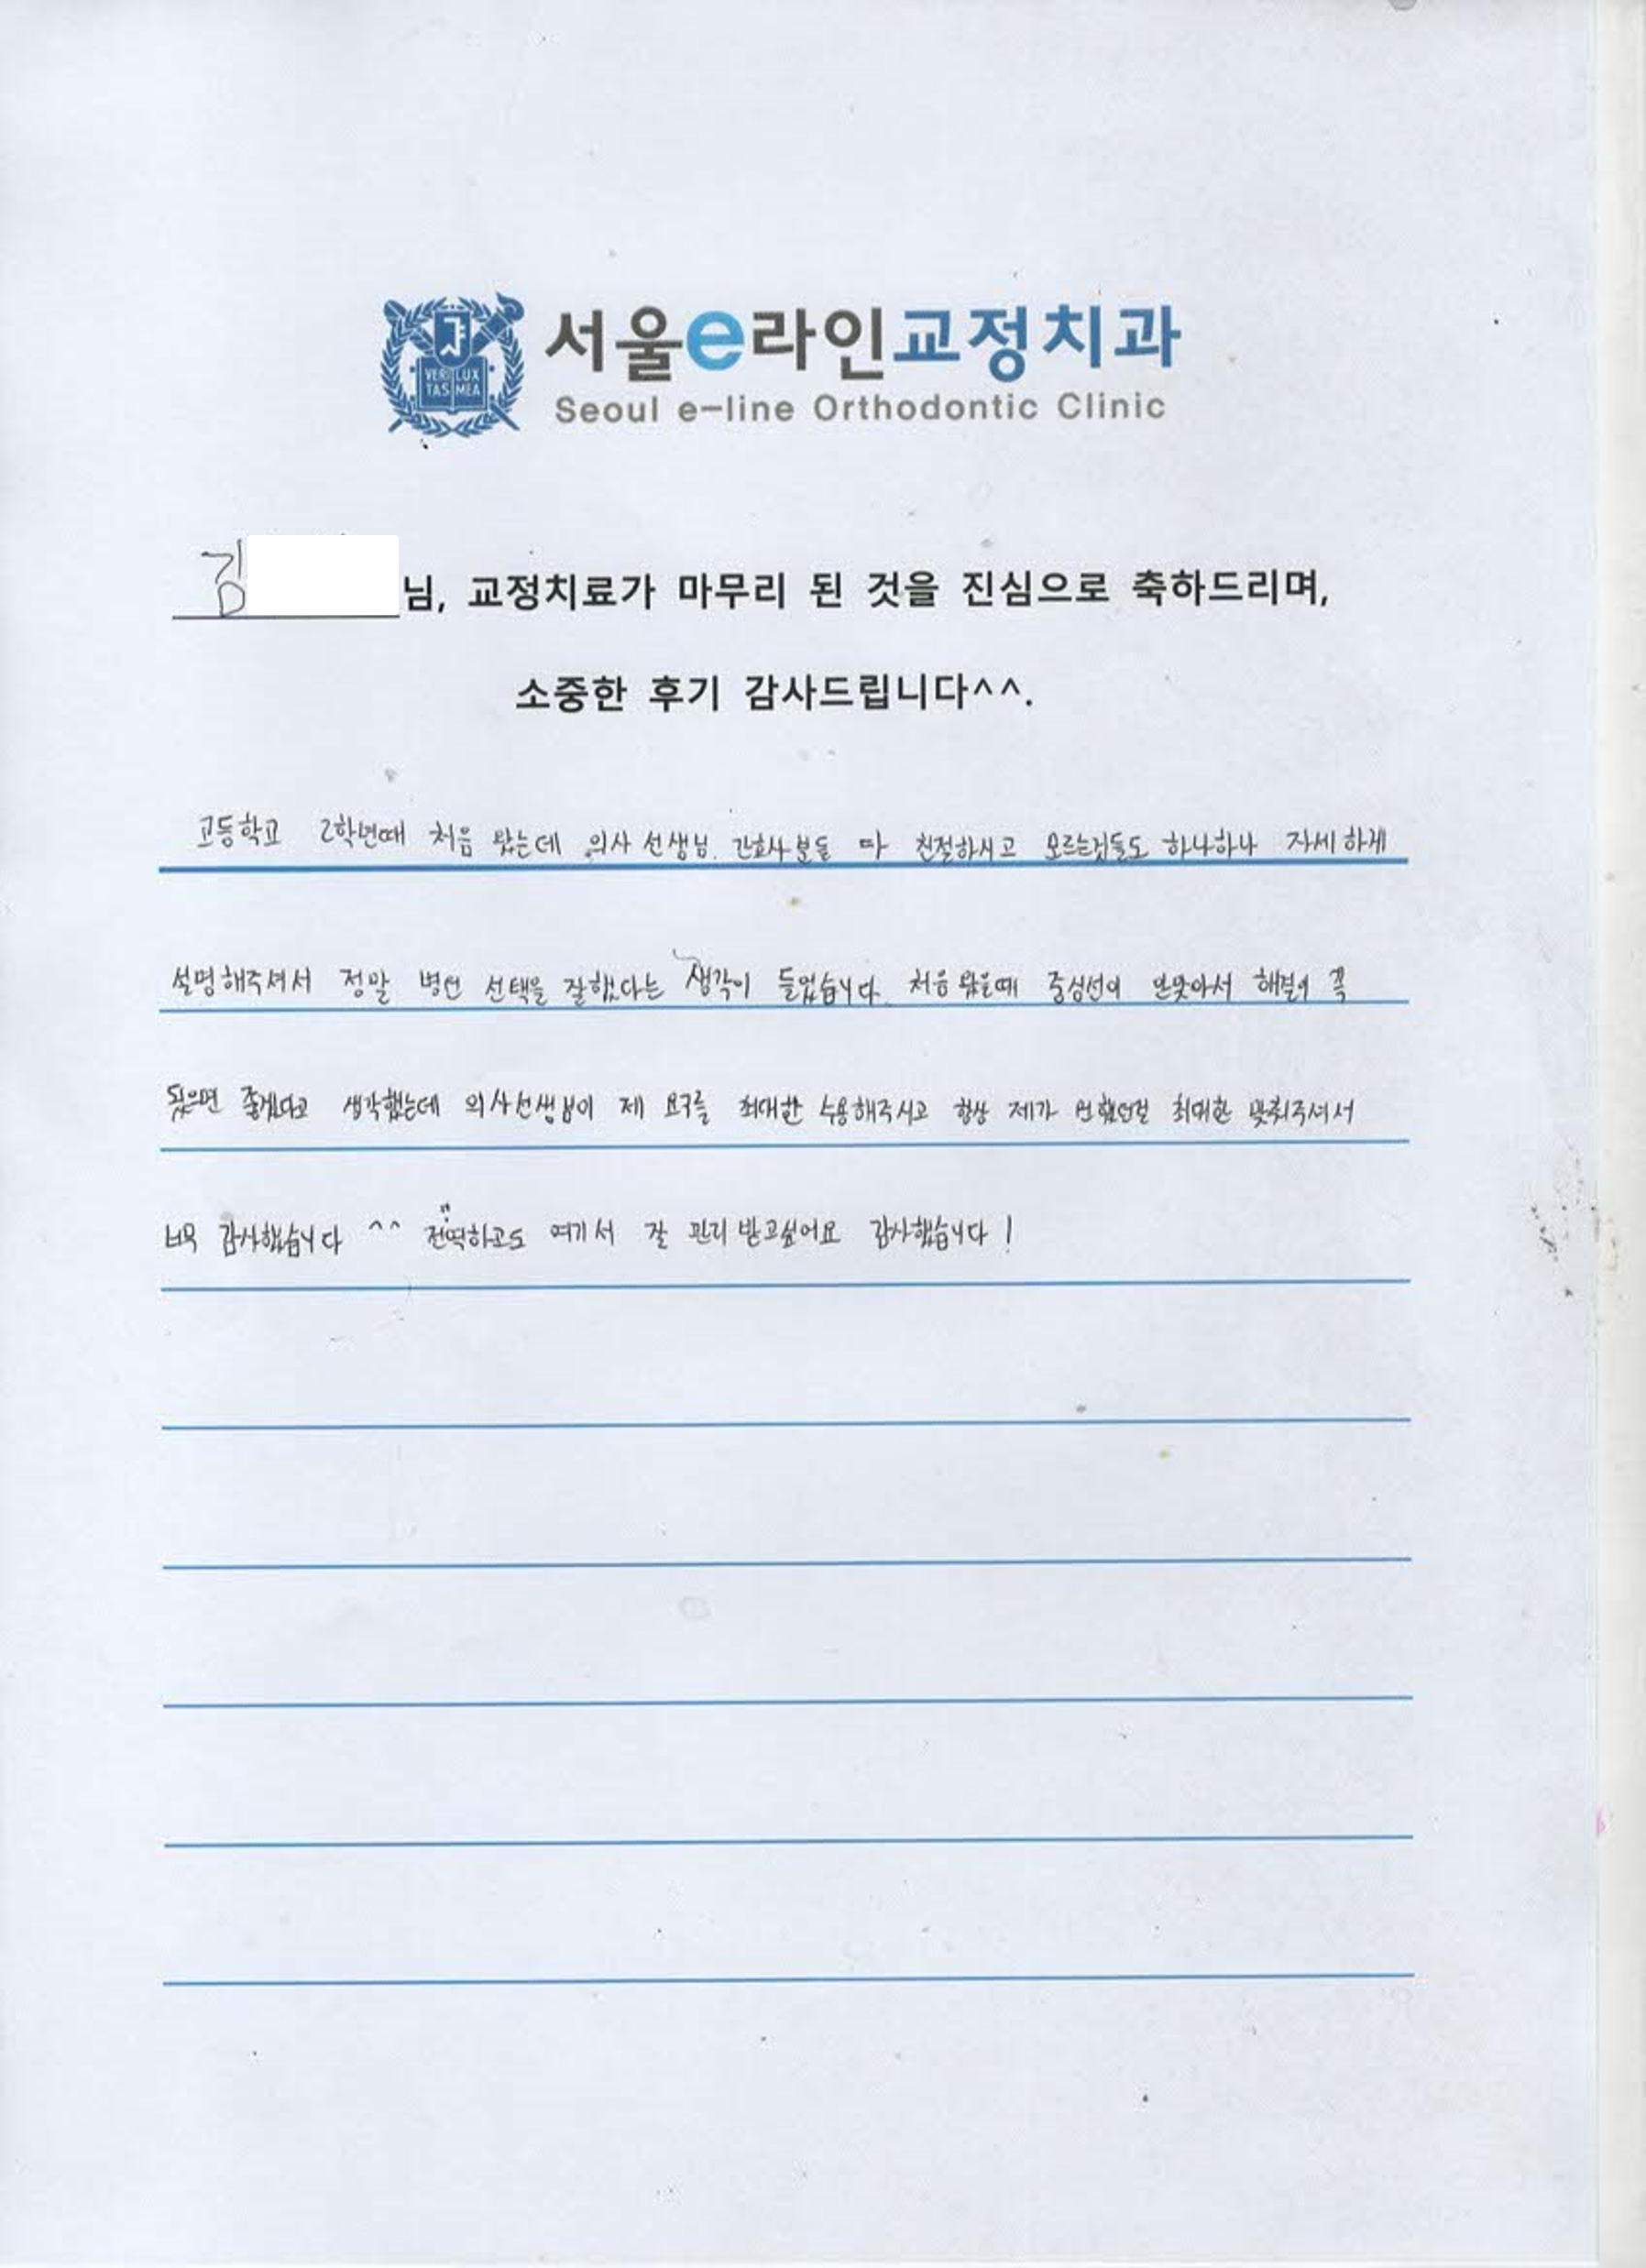 VERI LUX
TAS MEA
서울e라인교정치과
Seoul e-line Orthodontic Clinic
김 님, 교정치료가 마무리 된 것을 진심으로 축하드리며,
소중한 후기 감사드립니다^^.
고등학교 2학년때 처음 왔는데 의사 선생님. 간호사분들 다 친절하시고 모르는것들도 하나하나 자세하게
설명해주셔서 정말 병원 선택을 잘했다는 생각이 들었습니다. 처음 왔을때 중심선이 안맞아서 해결이 꼭
됬으면 좋겠다고 생각했는데 의사선생님이 제 요구를 최대한 수용해주시고 항상 제가 원했던걸 최대한 맞춰주셔서
너무 감사했습니다 ^^ 전역하고도 여기서 잘 관리 받고싶어요 감사했습니다!